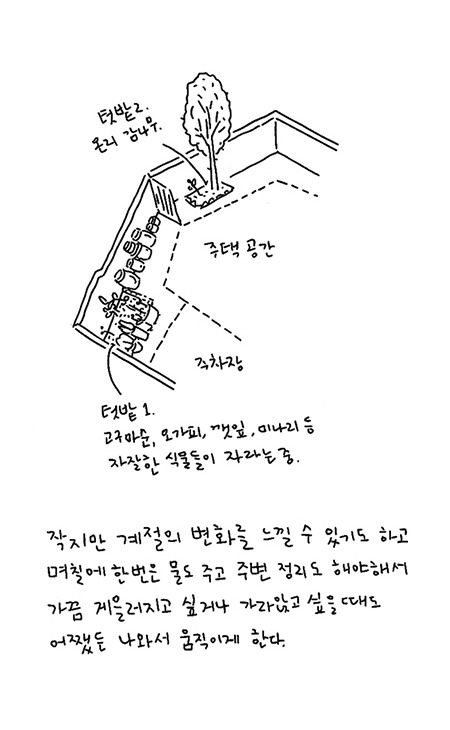 텃밭2.
온리 감나무.
주택 공간
주차장
텃밭 1.
고구마순, 오가피, 깻잎, 미나리 등
자잘한 식물들이 자라는 중.
작지만 계절의 변화를 느낄 수 있기도 하고
며칠에 한번은 물도 주고 주변 정리도 해야해서
가끔 게을러지고 싶거나 가라앉고 싶을 때도
어쨌든 나와서 움직이게 한다.